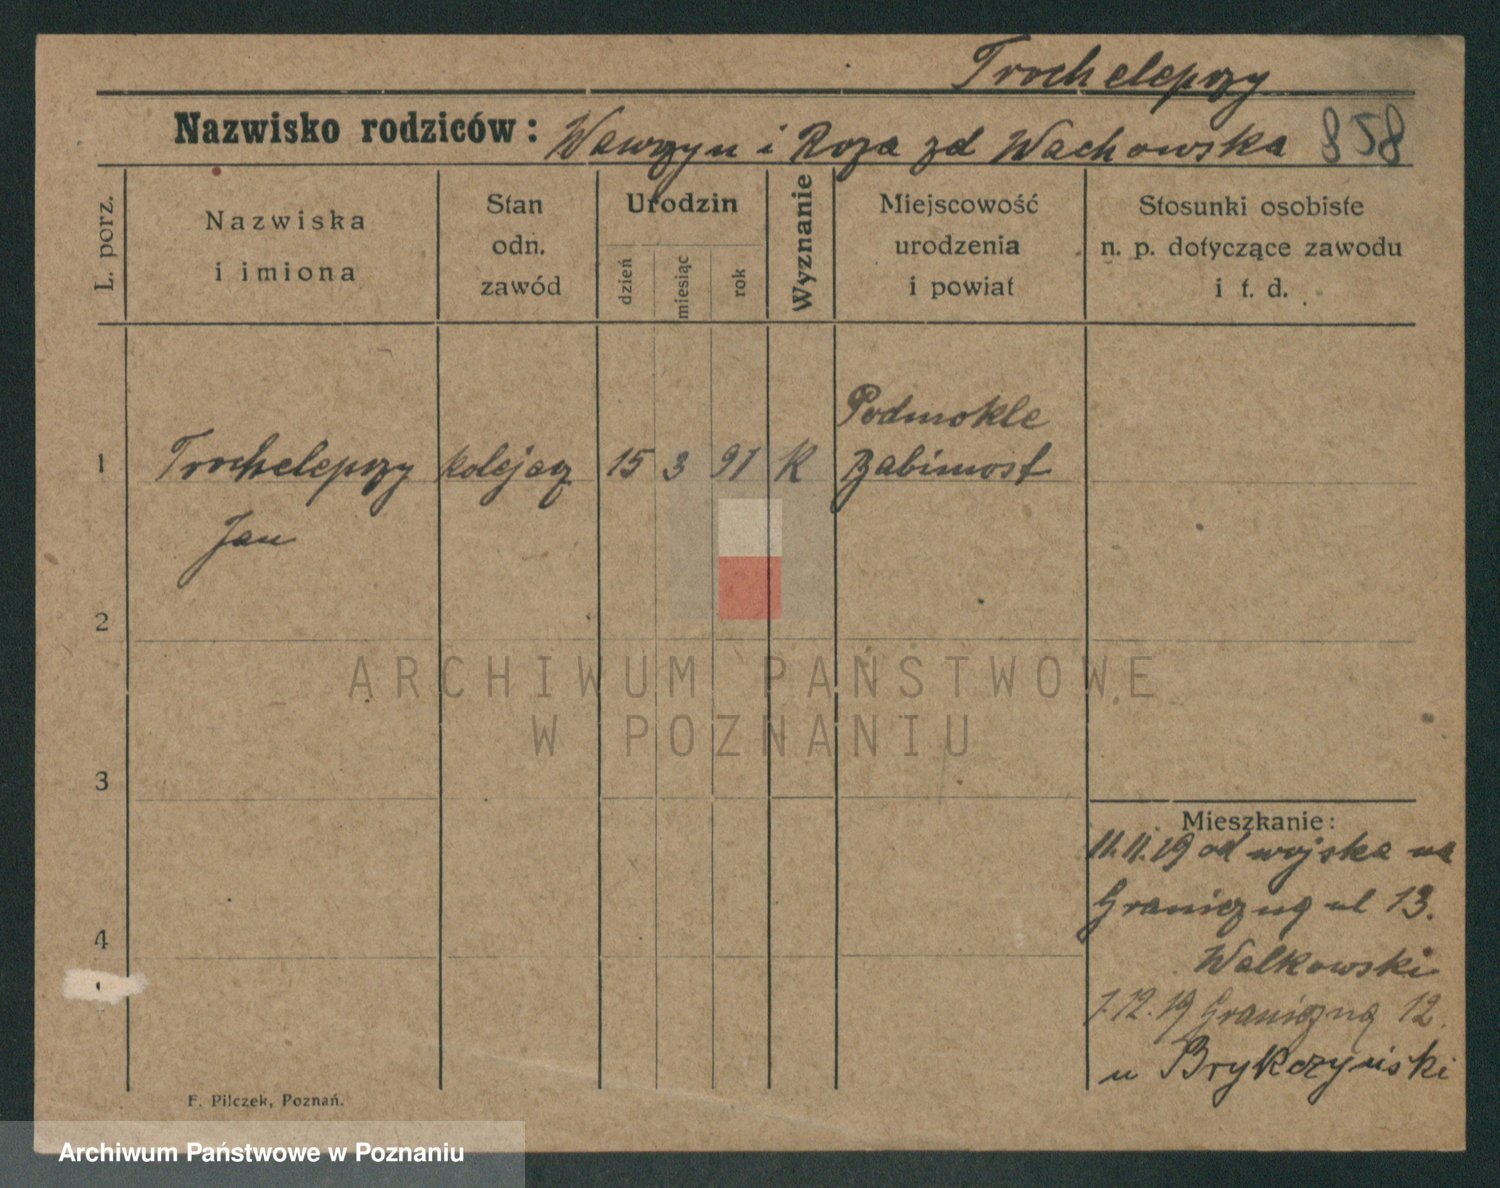 Trochelepszy
Nazwisko rodziców: Wawrzyn i Roza zd Wachowska 858
L. porz.
Nazwiska
i imiona
Stan
odn.
zawód
Urodzin
dzień
miesiąc
rok
Wyznanie
Miejscowość
urodzenia
i powiat
Stosunki osobiste
n. p. dotyczące zawodu
i t. d.
Podmokle
1 Trochelepszy kolejarz 15 3 91 K Babimost
Jan
2
3
4
Mieszkanie:
11.11.19 od wojska na
Graniczną ul 13.
Walkowski
1.12.19 Graniczną 12.
u Brykczyński
F. Pilczek, Poznań.
ARCHIWUM PAŃSTWOWE
W POZNANIU
Archiwum Państwowe w Poznaniu